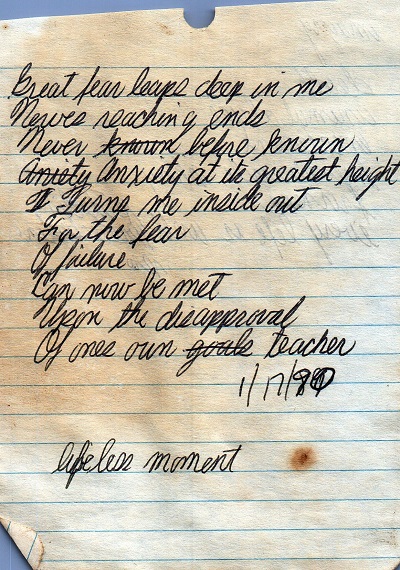 Great fear leaps deep in me
Nerves reaching ends
Never known before known
Anxiety Anxiety at its greatest height
It Turns me inside out
For the fear
Of failure
Can now be met
Upon the disapproval
Of ones own goals teacher
1/17/80
lifeless moment